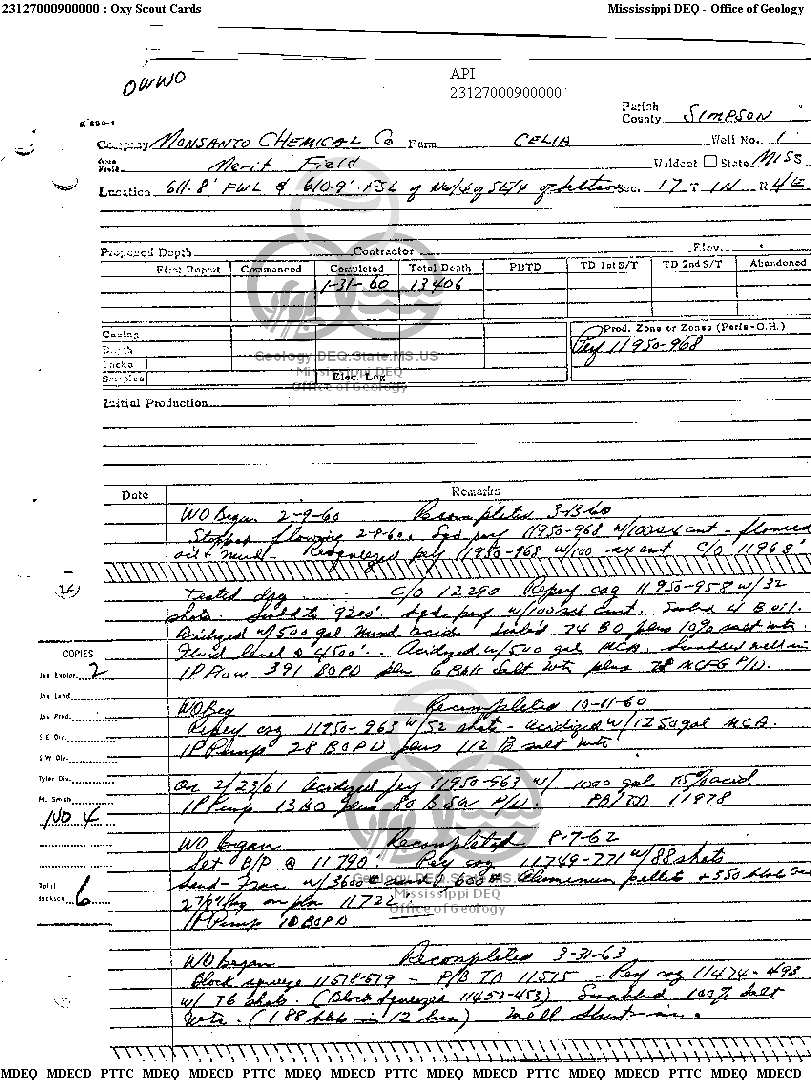 23127000900000 : Oxy Scout Cards
Mississippi DEQ - Office of Geology
OWWO
API
23127000900000
Parish
County SIMPSON
Company MONSANTO CHEMICAL Co Farm CELIA Well No. 1
Field Merit Field Wildcat State MISS
Location 611.8' FWL & 610.9' FSL of NW/4 of SE/4 of Section Sec. 17 T 1N R 4E
Proposed Depth Contractor Elev.
First Report Commenced Completed Total Depth PBTD TD 1st S/T TD 2nd S/T Abandoned
1-31-60 13406
Casing Prod. Zone or Zones (Perfs-O.H.)
Depth Perf 11950-968
Geology.DEQ.State.MS.US
Sacks
Mississippi DEQ
Samples Elec. Log
Office of Geology
Initial Production
Date Remarks
WO Began 2-9-60 Recompleted 3-13-60
Stopped flowing 2-8-60. Sqd perf 11950-968 w/100 sx cmt - flowed
oil & mud - Resqueezed perf 11950-968 w/100 sx cmt C/O 11968'
Tested dry. C/O 12290 Reperf csg 11950-958 w/32
shots. Swbd to 9200'. Sqd perf w/100 sack cmt. Swbd 4 B oil.
Acidized w/500 gal mud acid. Swbd 74 BO plus 10% salt wtr.
Fluid level @ 4500'. Acidized w/500 gal MCA. Swabbed well in
IP Flow 391 BOPD plus 6 Bbls Salt Wtr plus 78 MCFG P/D.
COPIES
Jax Explor. 2
Jax Land
Jax Prod.
S E Div.
S W Div.
Tyler Div.
M. Smith
NO 4
Total
Jackson 6
WO Beg Recompleted 10-11-60
Reperf csg 11950-963 w/52 shots - acidized w/1250 gal MCA.
IP Pump 28 BOPD plus 112 B salt wtr
On 2/23/61 Acidized perf 11950-963 w/ 1000 gal 15% acid
IP Pump 13 BO plus 80 B SW P/D. PB/TD 11978
WO Began Recompleted 8-7-62
Set B/P @ 11790. Perf csg 11749-771 w/88 shots
Sand-Frac w/3600# sand & 600# Aluminum pellets + 550 bbls
Geology.DEQ.State.MS.US
Mississippi DEQ
11722.
Office of Geology
IP Pump 10 BOPD
WO Began Recompleted 3-31-63
Block squeeze 11518-519 - P/B TD 11515 - Perf csg 11474-493
w/ 76 shots. (Block Squeezed 11457-453) Swabbed 100% Salt
wtr. (188 bbls in 12 hrs) Well Shut-in.
MDEQ MDECD PTTC MDEQ MDECD PTTC MDEQ MDECD PTTC MDEQ MDECD PTTC MDEQ MDECD PTTC MDEQ MDECD